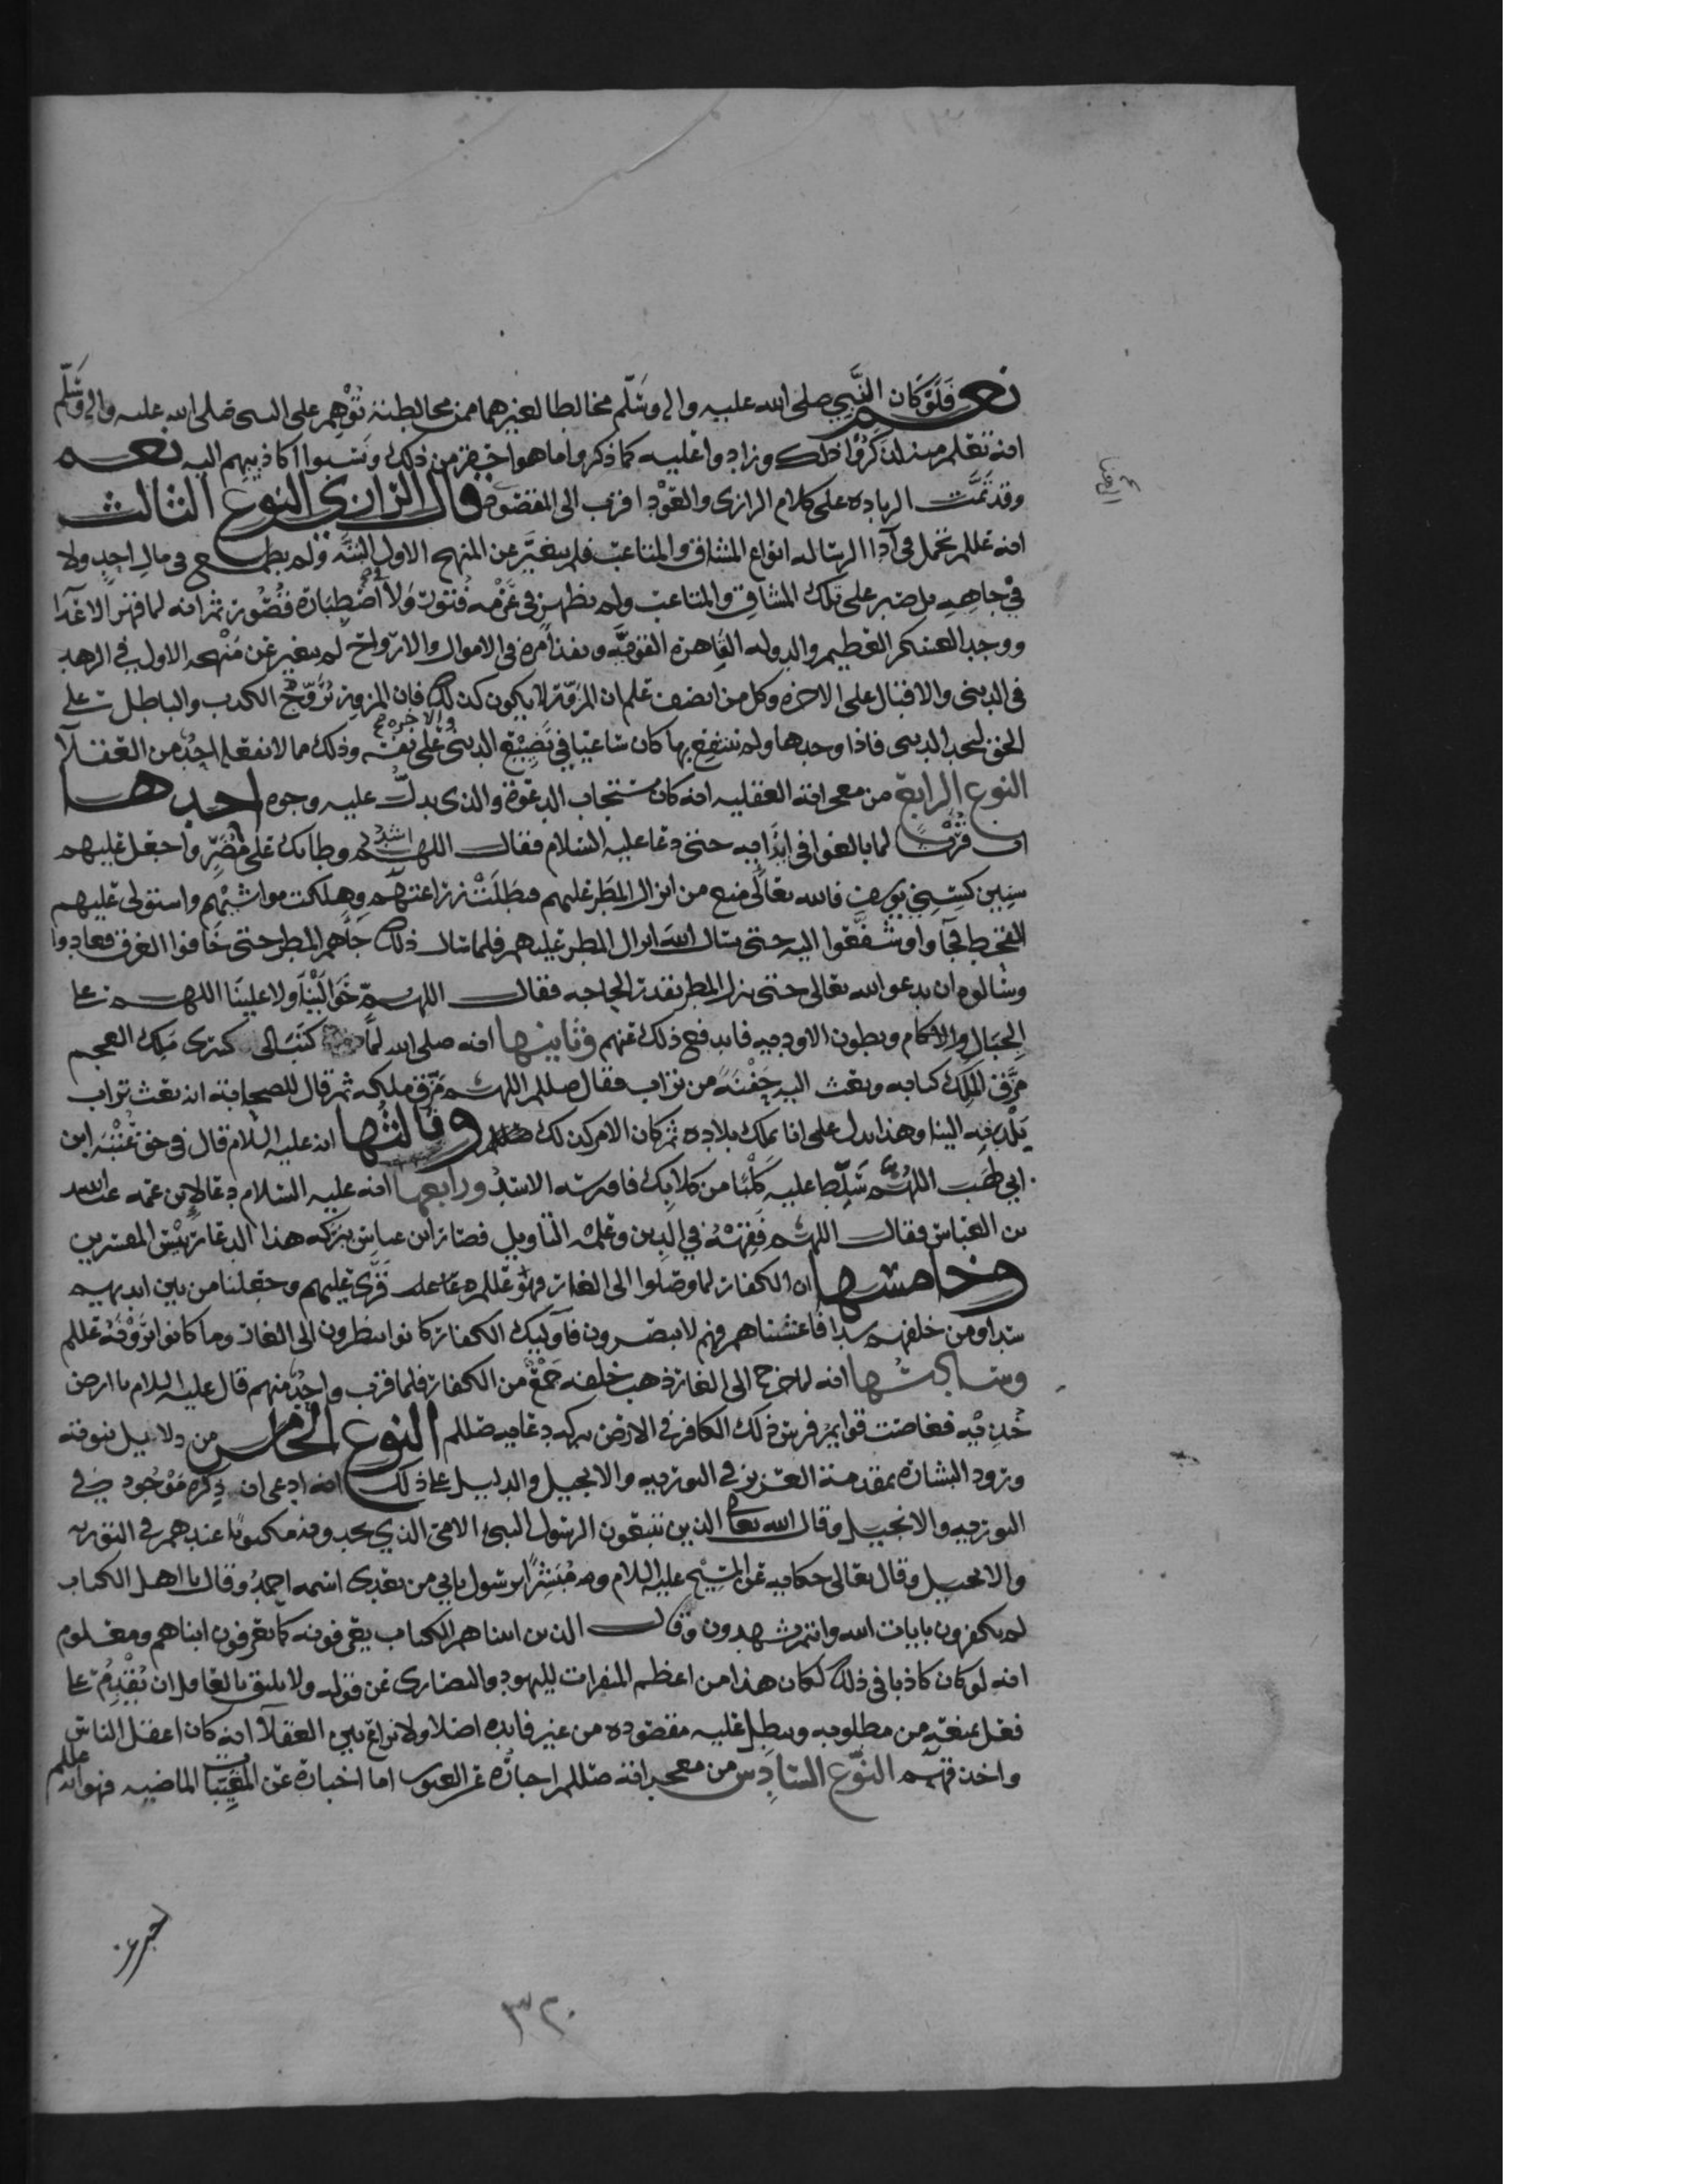 نعم فلو كان النبي صلى الله عليه واله وسلم مخالطا لغيرهما ممن مخالطته توهم على النبي صلى الله عليه واله وسلم
انه تعلم منه لذكروا ذلك وزادوا عليه كما ذكروا ما هو اخفى من ذلك ونسبوا اكاذيبهم اليه نعم
وقد تمت الزياده على كلام الرازي والعود اقرب الى المقصود قال الرازي النوع الثالث
انه عللم تحمل في آدا الرساله انواع المشاق والمتاعب فلم يتغير عن المنهج الاول البتة ولم يطمع في مال احد ولا
في جاهه بل صبر على تلك المشاق والمتاعب ولم يظهر في عزمه فتور ولا في اصطباره قصور ثم انه لما قهر الاعدا
ووجد العسكر العظيم والدوله القاهرة القويه ونفذ امره في الاموال والارواح لم يتغير عن منهجه الاول في الزهد
في الدنيى والاقبال على الاخره وكل من انصف علم ان المزور لا يكون كذلك فان المزور يروج الكذب والباطل على
الحق ليجد الدنيى فاذا وجدها ولم ينتفع بها كان ساعيا في تضييع الدنيى والاخره على نفسه وذلك مما لا يفعله احد من العقلا
النوع الرابع من معجزاته العقليه انه كان مستجاب الدعوة والذي يدل عليه وجوه احدها
ان قريشا لما بالغوا في ايذايه حتى دعا عليه السلام فقال اللهم اشدد وطاتك على مضر واجعل عليهم
سنين كسني يوسف فالله تعالى منع من انزال المطر عليهم فبطلت زراعتهم وهلكت مواشيهم واستولى عليهم
القحط فجآوا وشفعوا اليه حتى يسال الله انزال المطر عليهم فلما سال ذلك جآهم المطر حتى خافوا الغرق فعادوا
وسالوه ان يدعو الله تعالى حتى ينزل المطر بقدر الحاجه فقال اللهم حوالينا ولا علينا اللهم على
الجبال والاكام وبطون الاوديه فاندفع ذلك عنهم وثانيها انه صلى الله لما كتب الى كسرى ملك العجم
مزق الملك كتابه وبعث اليه حفنة من تراب فقال صللم اللهم مزق ملكه ثم قال للصحابة انه بعث تراب
بلده الينا وهذا يدل على انا نملك بلاده ثم كان الامر كذلك وثالثها انه عليه السلام قال في حق عتبة ابن
ابي لهب اللهم سلط عليه كلبا من كلابك فافترسه الاسد ورابعها انه عليه السلام دعا لابن عمه عبد الله
بن العباس فقال اللهم فقهه في الدين وعلمه التاويل فصار ابن عباس ببركه هذا الدعا رئيس المفسرين
وخامسها ان الكفار لما وصلوا الى الغار فهو عللم دعا عليه قرى عليهم وجعلنا من بين ايديهم
سدا ومن خلفهم سدا فاغشيناهم فهم لا يبصرون فاوليك الكفار كانوا ينظرون الى الغار وما كانوا يرونه عللم
وسادسها انه لما خرج الى الغار ذهب خلفه جمع من الكفار فلما قرب واحد منهم قال عليه السلام يا ارض
خذيه فغاصت قوايم فرس ذلك الكافر في الارض ببركه دعايه صللم النوع الخامس من دلايل نبوته
ورود البشارة بمقدمة العزيز في التوريه والانجيل والدليل على ذلك انه ادعى ان ذكره موجود في
التوريه والانجيل وقال الله تعالى الذين يتبعون الرسول النبي الامي الذي يجدونه مكتوبا عندهم في التوريه
والانجيل وقال تعالى حكايه عن المسيح عليه السلام ومبشرا برسول ياتي من بعدي اسمه احمد وقال يا اهل الكتاب
لم تكفرون بايات الله وانتم تشهدون وقال الذين اتيناهم الكتاب يعرفونه كما يعرفون ابناهم ومعلوم
انه لو كان كاذبا في ذلك لكان هذا من اعظم المنفرات لليهود والنصارى عن قوله ولا يليق بالعاقل ان يقدم على
فعل يمنعه من مطلوبه ويبطل عليه مقصوده من غير فايده اصلا ولا نزاع بين العقلا انه كان اعقل الناس
واحذقهم النوع السادس من معجزاته صللم اخباره عن الغيوب اما اخباره عن المغيبات الماضيه فهو انه عللم
٣٢٠